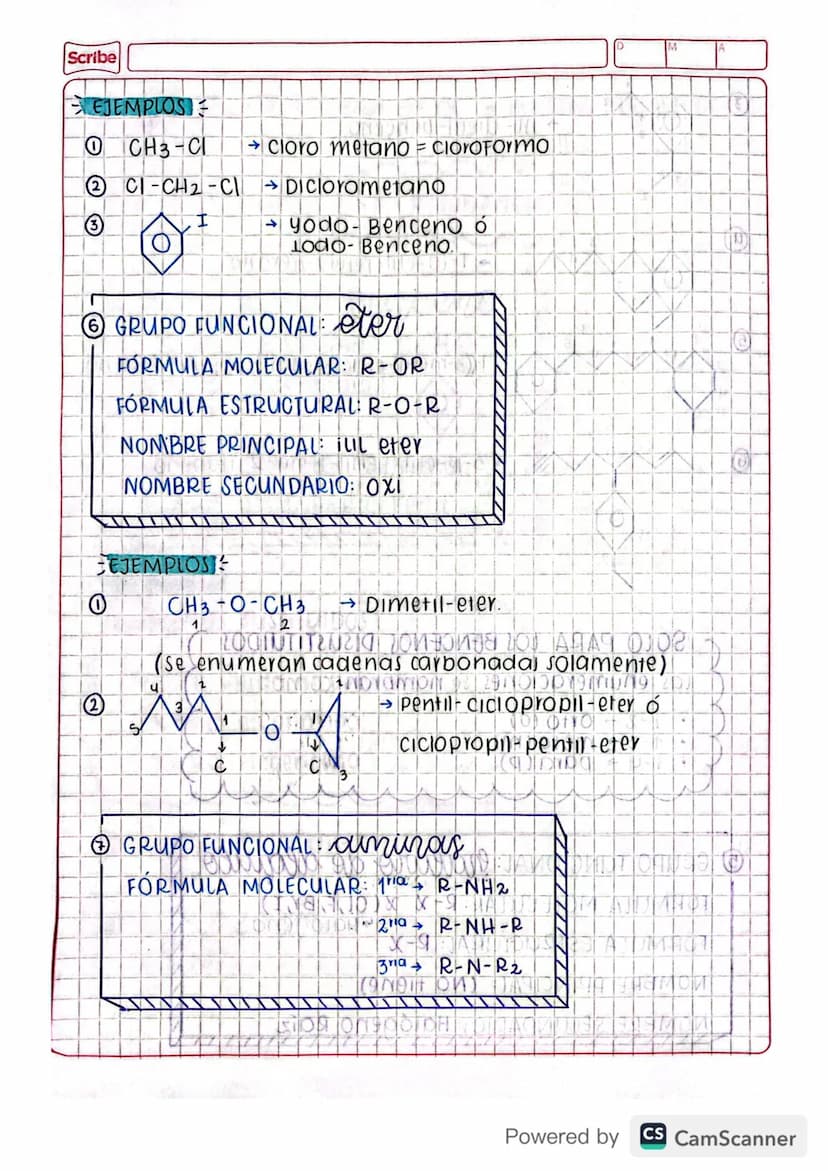 Scribe
D M A
EJEMPLOS
① CH3-Cl → Cloro metano = Cloroformo
② Cl-CH2-Cl → Diclorometano
③ I → Yodo-Benceno ó
Iodo-Benceno.
⑥ GRUPO FUNCIONAL: éter
FÓRMULA MOLECULAR: R-OR
FÓRMULA ESTRUCTURAL: R-O-R
NOMBRE PRINCIPAL: iLIL eter
NOMBRE SECUNDARIO: OXi
EJEMPLOS
① CH3-O-CH3 → Dimetil-eter.
1 2
(se enumeran cadenas carbonadas solamente)
② 5 4 3 2 1 C O 1 C 2 3 → Pentil-ciclopropil-eter ó
ciclopropil-pentil-eter
⑦ GRUPO FUNCIONAL: aminas
FÓRMULA MOLECULAR: 1ria → R-NH2
2ria → R-NH-R
3ria → R-N-R2
Powered by CS CamScanner